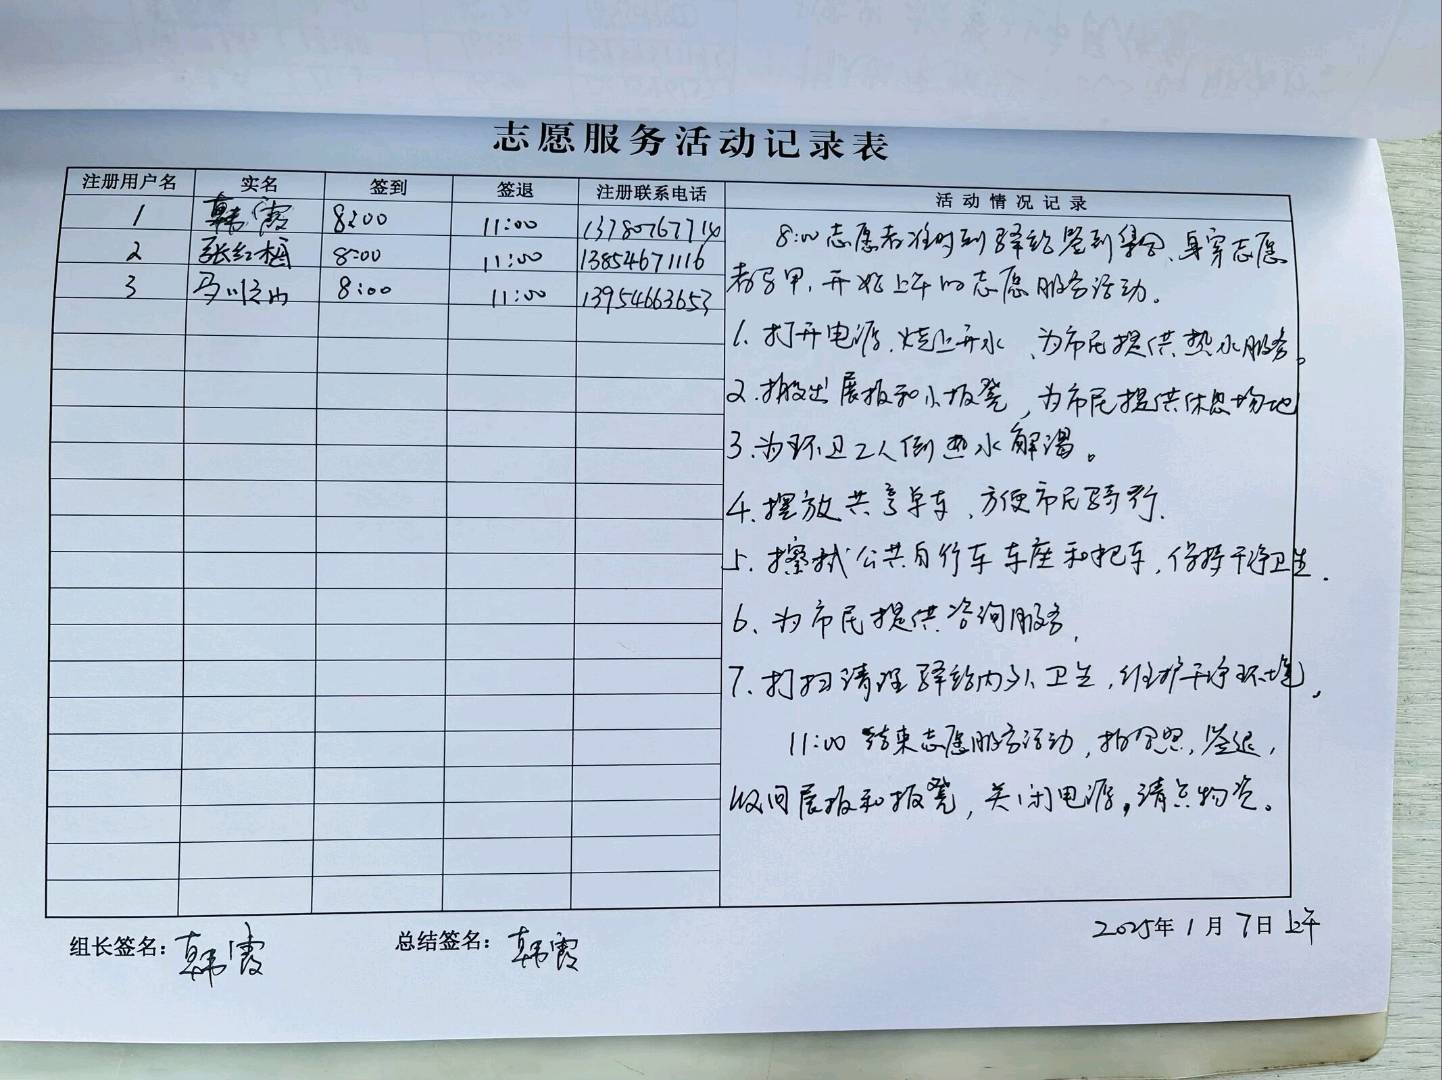 志愿服务活动记录表
注册用户名 实名 签到 签退 注册联系电话 活动情况记录
1 韩霞 8:00 11:00 13780767714
2 张红梅 8:00 11:00 13854671116
3 马 8:00 11:00 13954663653
8:00志愿者准时到驿站签到集合、身穿志愿
者马甲,开始上午的志愿服务活动。
1、打开电源、烧上开水、为市民提供热水服务。
2、搬出展板和小板凳,为市民提供休息场地
3、为环卫工人倒热水解渴。
4、摆放共享单车、方便市民骑行.
5、擦拭公共自行车车座和把车,保持干净卫生.
6、为市民提供咨询服务,
7、打扫清理驿站内外卫生,维护干净环境,
11:00结束志愿服务活动,拍合照,签退,
收回展板和板凳,关闭电源,清点物资。
2025年1月7日上午
组长签名:韩霞 总结签名:韩霞